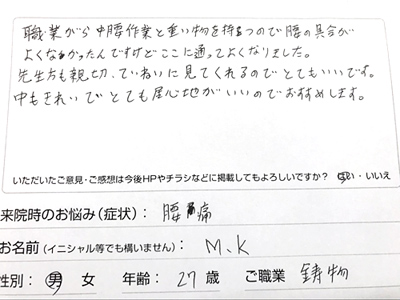 職業がら中腰作業と重い物を持つので腰の具合が
よくなかったんですけどここに通ってよくなりました。
先生方も親切、ていねいに見てくれるのでとてもいいです。
中もきれいでとても居心地がいいのでおすすめします。
いただいたご意見・ご感想は今後HPやチラシなどに掲載してもよろしいですか? はい・いいえ
来院時のお悩み(症状): 腰痛
お名前(イニシャル等でも構いません) M.K
性別: 男 女 年齢: 27歳 ご職業 鋳物